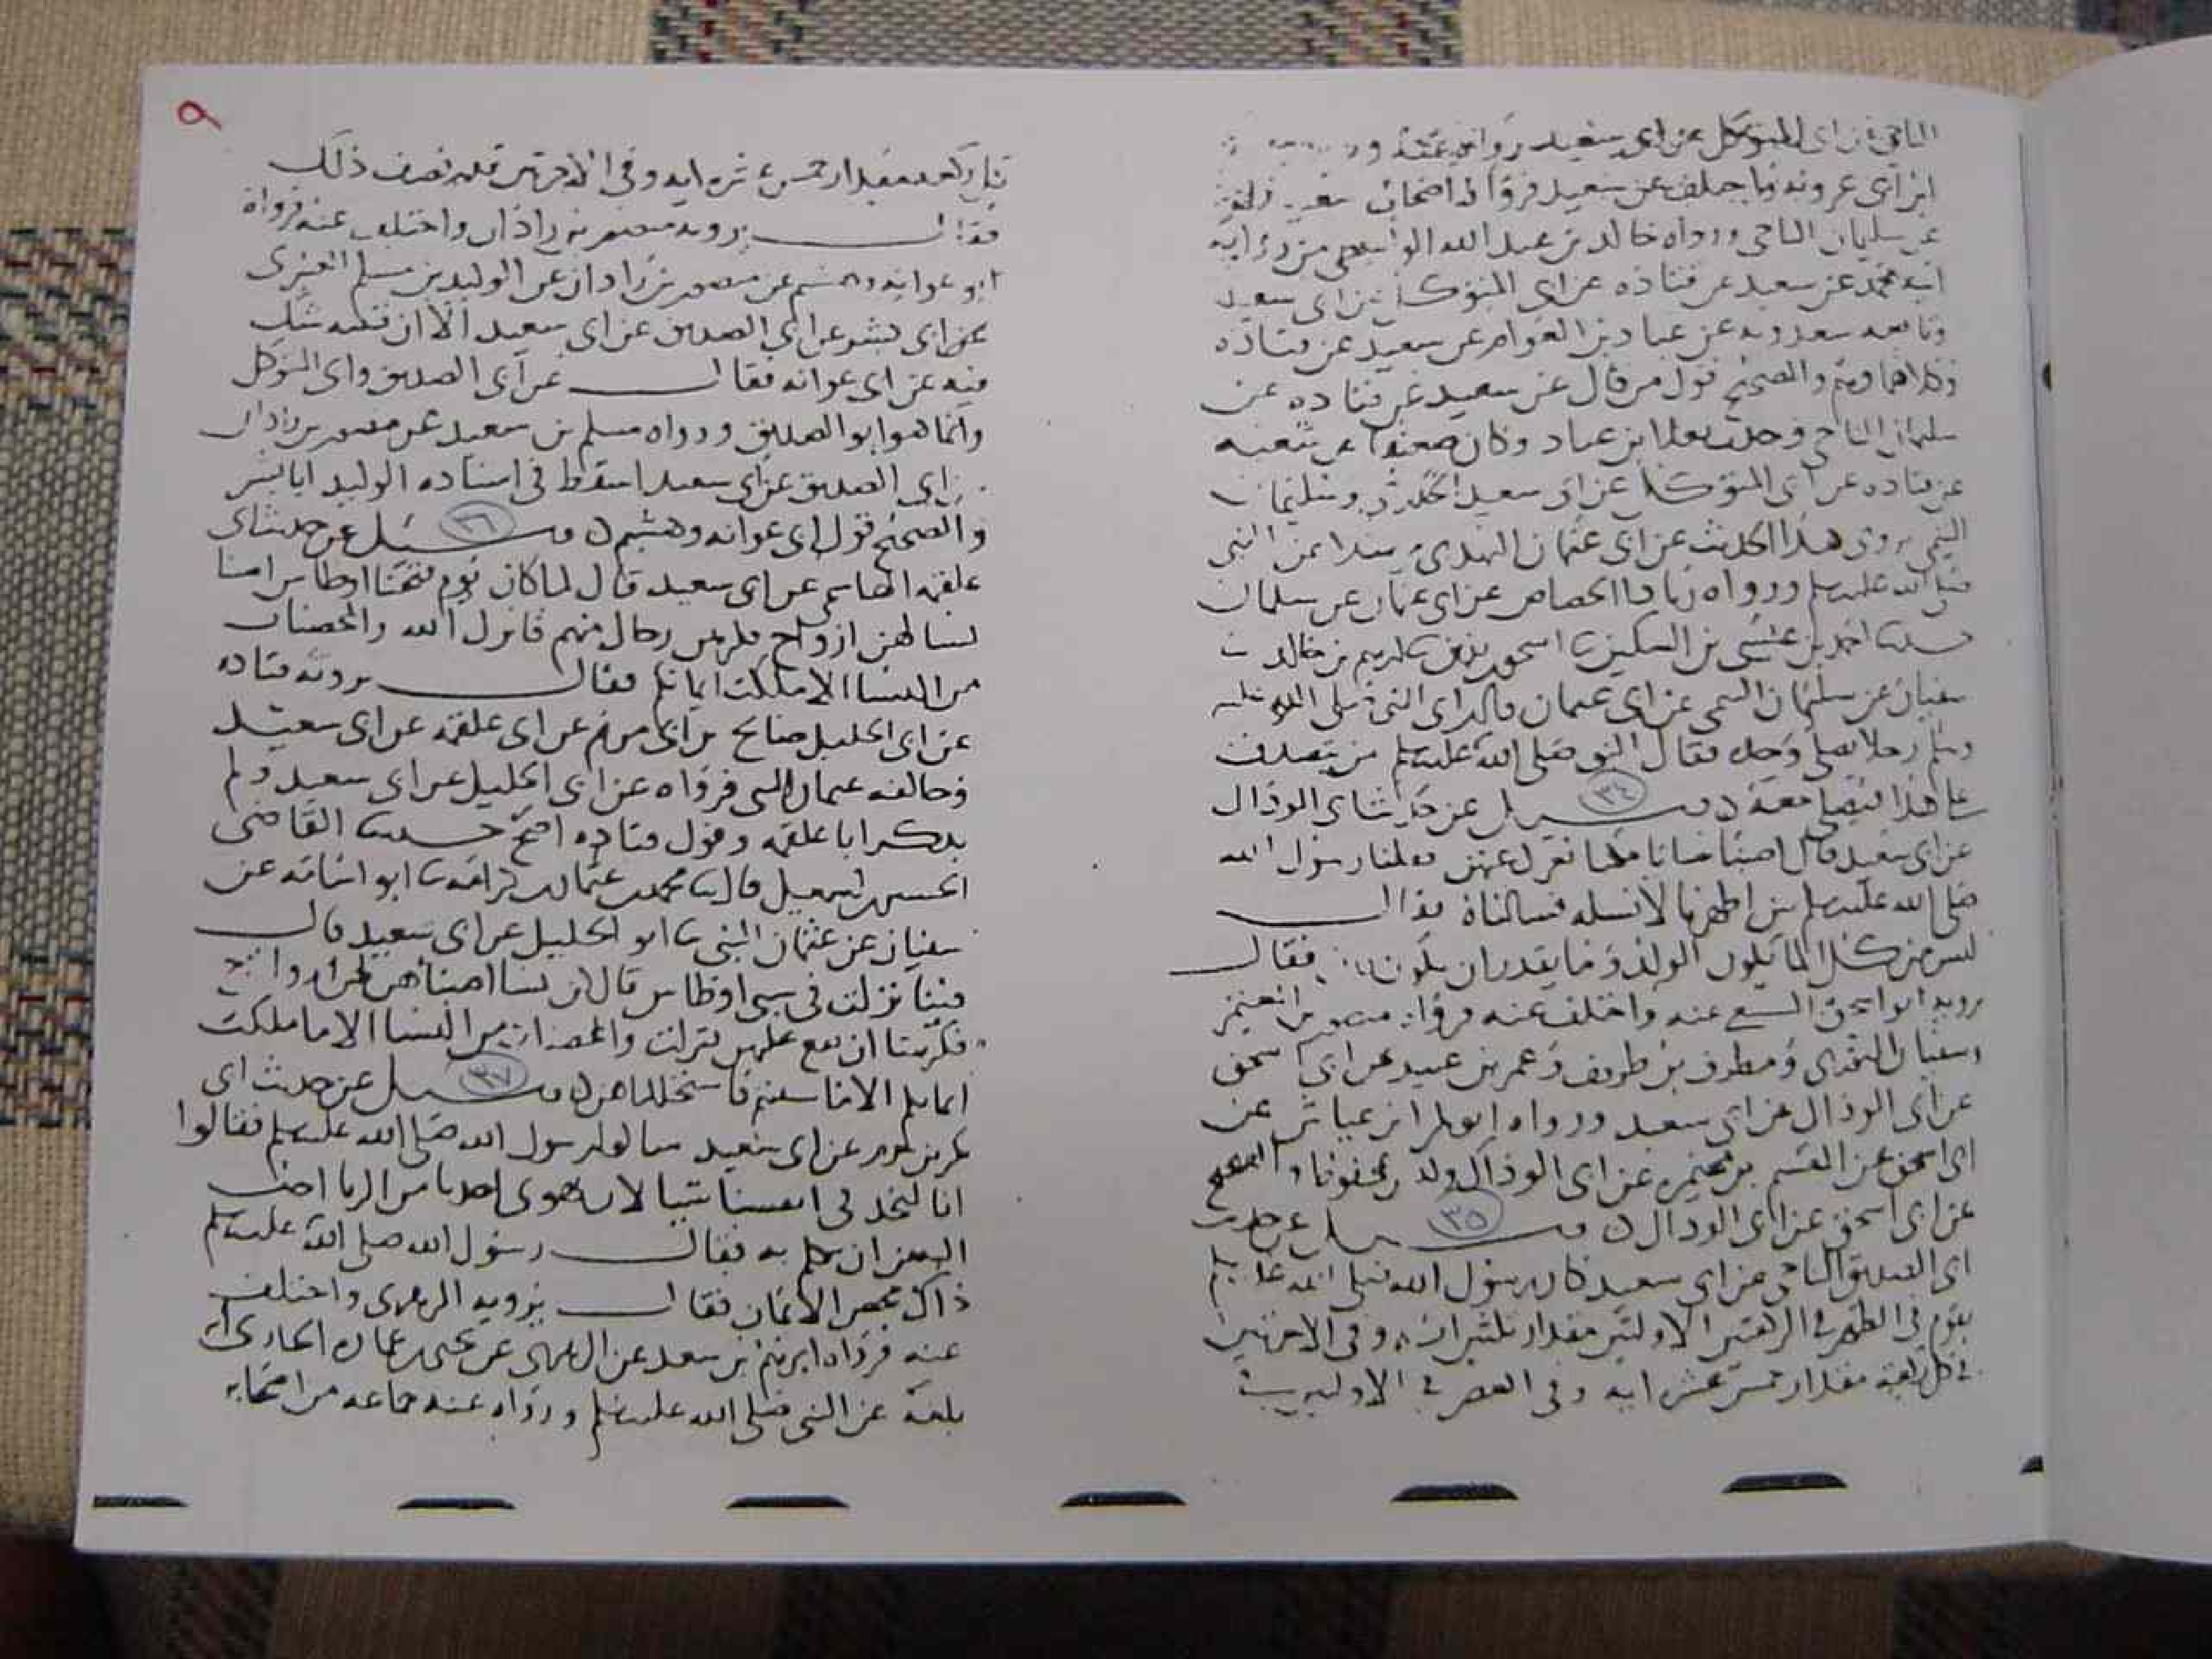 الناجي عن ابي المتوكل عن ابي سعيد
ابن ابي عروبه عن سعيد فرواه اصحاب سعيد
عن سليمان الناجي ورواه خالد بن عبد الله الواسطي من رواية
ابنه محمد عن سعيد عن قتاده عن ابي المتوكل عن ابي سعيد
وتابعه سعدويه عن عباد بن العوام عن سعيد عن قتاده
وكلاهما وهم والصحيح قول من قال عن سعيد عن
سليمان الناجي وحدث بهلا ابن عباد وكان ضعيفا عن شعبه
عن قتاده عن ابي المتوكل عن ابي سعيد الخدري وسليمان
التيمي يروي هذا الحديث عن ابي عثمان النهدي مرسلا عن النبي
صلى الله عليه وسلم ورواه زياد الجصاص عن ابي عثمان عن سلمان
حدثنا احمد بن عيسى بن السكين اسحق بن خالد
سفيان عن سليمان التيمي عن ابي عثمان قال راى النبي صلى الله عليه
وسلم رجلا يصلي وحده فقال النبي صلى الله عليه وسلم من يتصدق
على هذا فيصلي معه ٣٤ وسيل عن حديث ابي الوداك
عن ابي سعيد قال اصبنا سبايا نعزل عنهن رسول الله
صلى الله عليه وسلم بين اظهرنا لا نسله فسالناه فقال
ليس من كل الما يكون الولد وما يقدر ان يكون فقال
يرويه ابو اسحق السبيعي عنه واختلف عنه فرواه منصور بن المعتمر
وسفيان الثوري ومطرف بن طريف وعمر بن عبيد عن ابي اسحق
عن ابي الوداك عن ابي سعيد ورواه ابو بكر ابن عياش عن
ابي اسحق عن القسم بن مخيمره عن ابي الوداك والصحيح
عن ابي اسحق عن ابي الوداك ٣٥ وسيل عن حديث
ابي الصديق الناجي عن ابي سعيد كان رسول الله صلى الله عليه وسلم
يقوم في الظهر في الركعتين الاولتين مقدار ثلثين اية وفي الاخرتين
في كل ركعه مقدار خمس عشر ايه وفي العصر في الاولتين
كل ركعه مقدار خمس عشره ايه وفي الاخرتين قدر نصف ذلك
فقال يرويه منصور بن زاذان واختلف عنه فرواه
ابو عوانه وهشيم عن منصور بن زاذان عن الوليد بن مسلم العنبري
عن ابي بشر عن ابي الصديق عن ابي سعيد الا ان قتيبه شك
فيه عن ابي عوانه فقال عن ابي الصديق واي المتوكل
وانما هو ابو الصديق ورواه مسلم بن سعيد عن منصور بن زاذان
عن ابي الصديق عن ابي سعيد اسقط في اسناده الوليد ابا بشر
والصحيح قول ابي عوانه وهشيم ٣٦ وسيل عن حديث ابي
علقمه الهاشمي عن ابي سعيد قال لما كان يوم فتحنا اوطاس اصبنا
نسا لهن ازواج فكرههن رجال منهم فانزل الله والمحصنات
من النسا الا ما ملكت ايمانكم فقال يرويه قتاده
عن ابي الخليل صالح بن ابي مريم عن ابي علقمه عن ابي سعيد
وخالفه عثمان البتي فرواه عن ابي الخليل عن ابي سعيد ولم
يذكر ابا علقمه وقول قتاده اصح حدثنا القاضي
الحسين بن اسمعيل قال ثنا محمد بن عثمان بن كرامه ثنا ابو اسامه عن
سفيان عن عثمان البتي ثنا ابو الخليل عن ابي سعيد قال
فينا نزلت في سبي اوطاس قال نسا اصبناهن لهن ازواج
فكرهنا ان نقع عليهن فنزلت والمحصنات من النسا الا ما ملكت
ايمانكم الا ما سبيتم فاستحللناهن ٣٧ وسيل عن حديث ابي
عن ابي سعيد سالوا رسول الله صلى الله عليه وسلم فقالوا
انا لنجد في انفسنا شيا لان يهوي احدنا من الثريا احب
اليه من ان يتكلم به فقال رسول الله صلى الله عليه وسلم
ذاك محض الايمان فقال يرويه الزهري واختلف
عنه فرواه ابرهيم بن سعد عن الزهري عن يحيى بن عماره
بلغه عن النبي صلى الله عليه وسلم ورواه عنه جماعه من اصحابه
٩